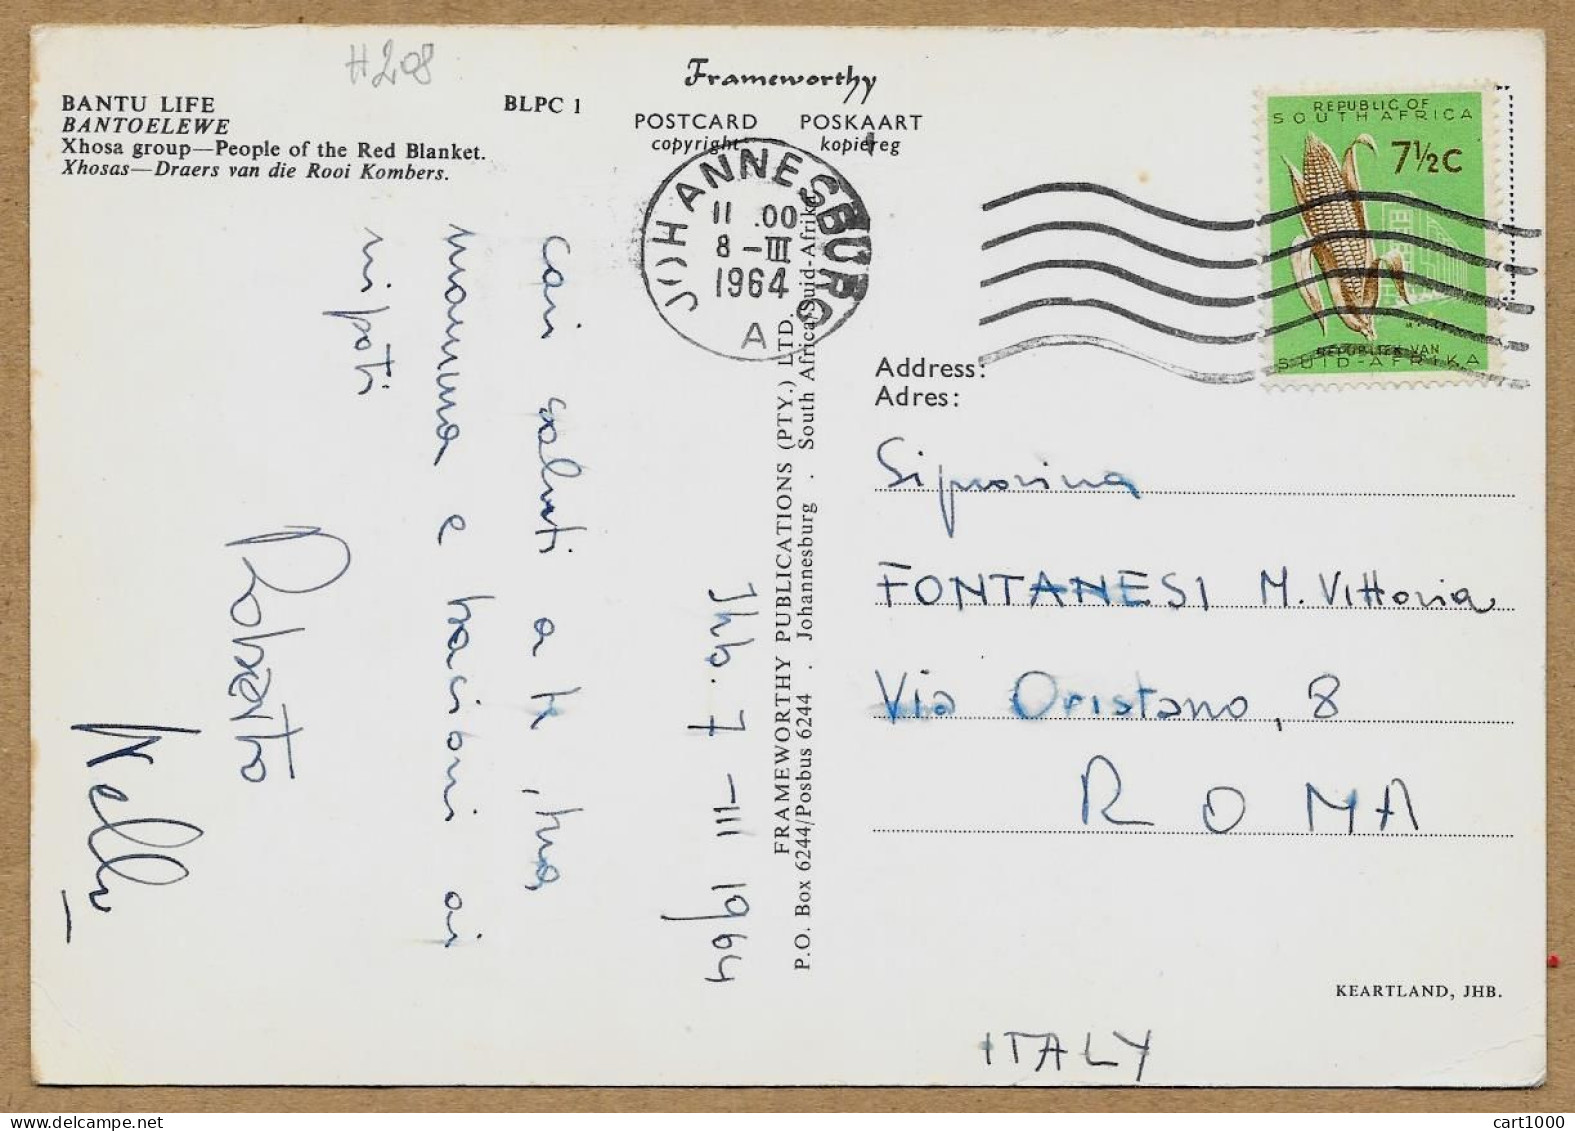 H208
BANTU LIFE
BANTOELEWE
BLPC 1
Xhosa group—People of the Red Blanket.
Xhosas—Draers van die Rooi Kombers.
Frameworthy
POSTCARD POSKAART
copyright kopiereg
JOHANNESBURG
11 00
8-III
1964
A
REPUBLIC OF
SOUTH AFRICA
7½C
REPUBLIEK VAN
SUID-AFRIKA
Jhb. 7-III 1964
Cari saluti a te, tua
mamma e bacioni ai
nipoti
Roberto
Nelly
FRAMEWORTHY PUBLICATIONS (PTY.) LTD.
P.O. Box 6244/Posbus 6244 . Johannesburg . South Africa/Suid-Afrika
Address:
Adres:
Signorina
FONTANESI M. Vittoria
Via Oristano, 8
ROMA
KEARTLAND, JHB.
ITALY
cart1000